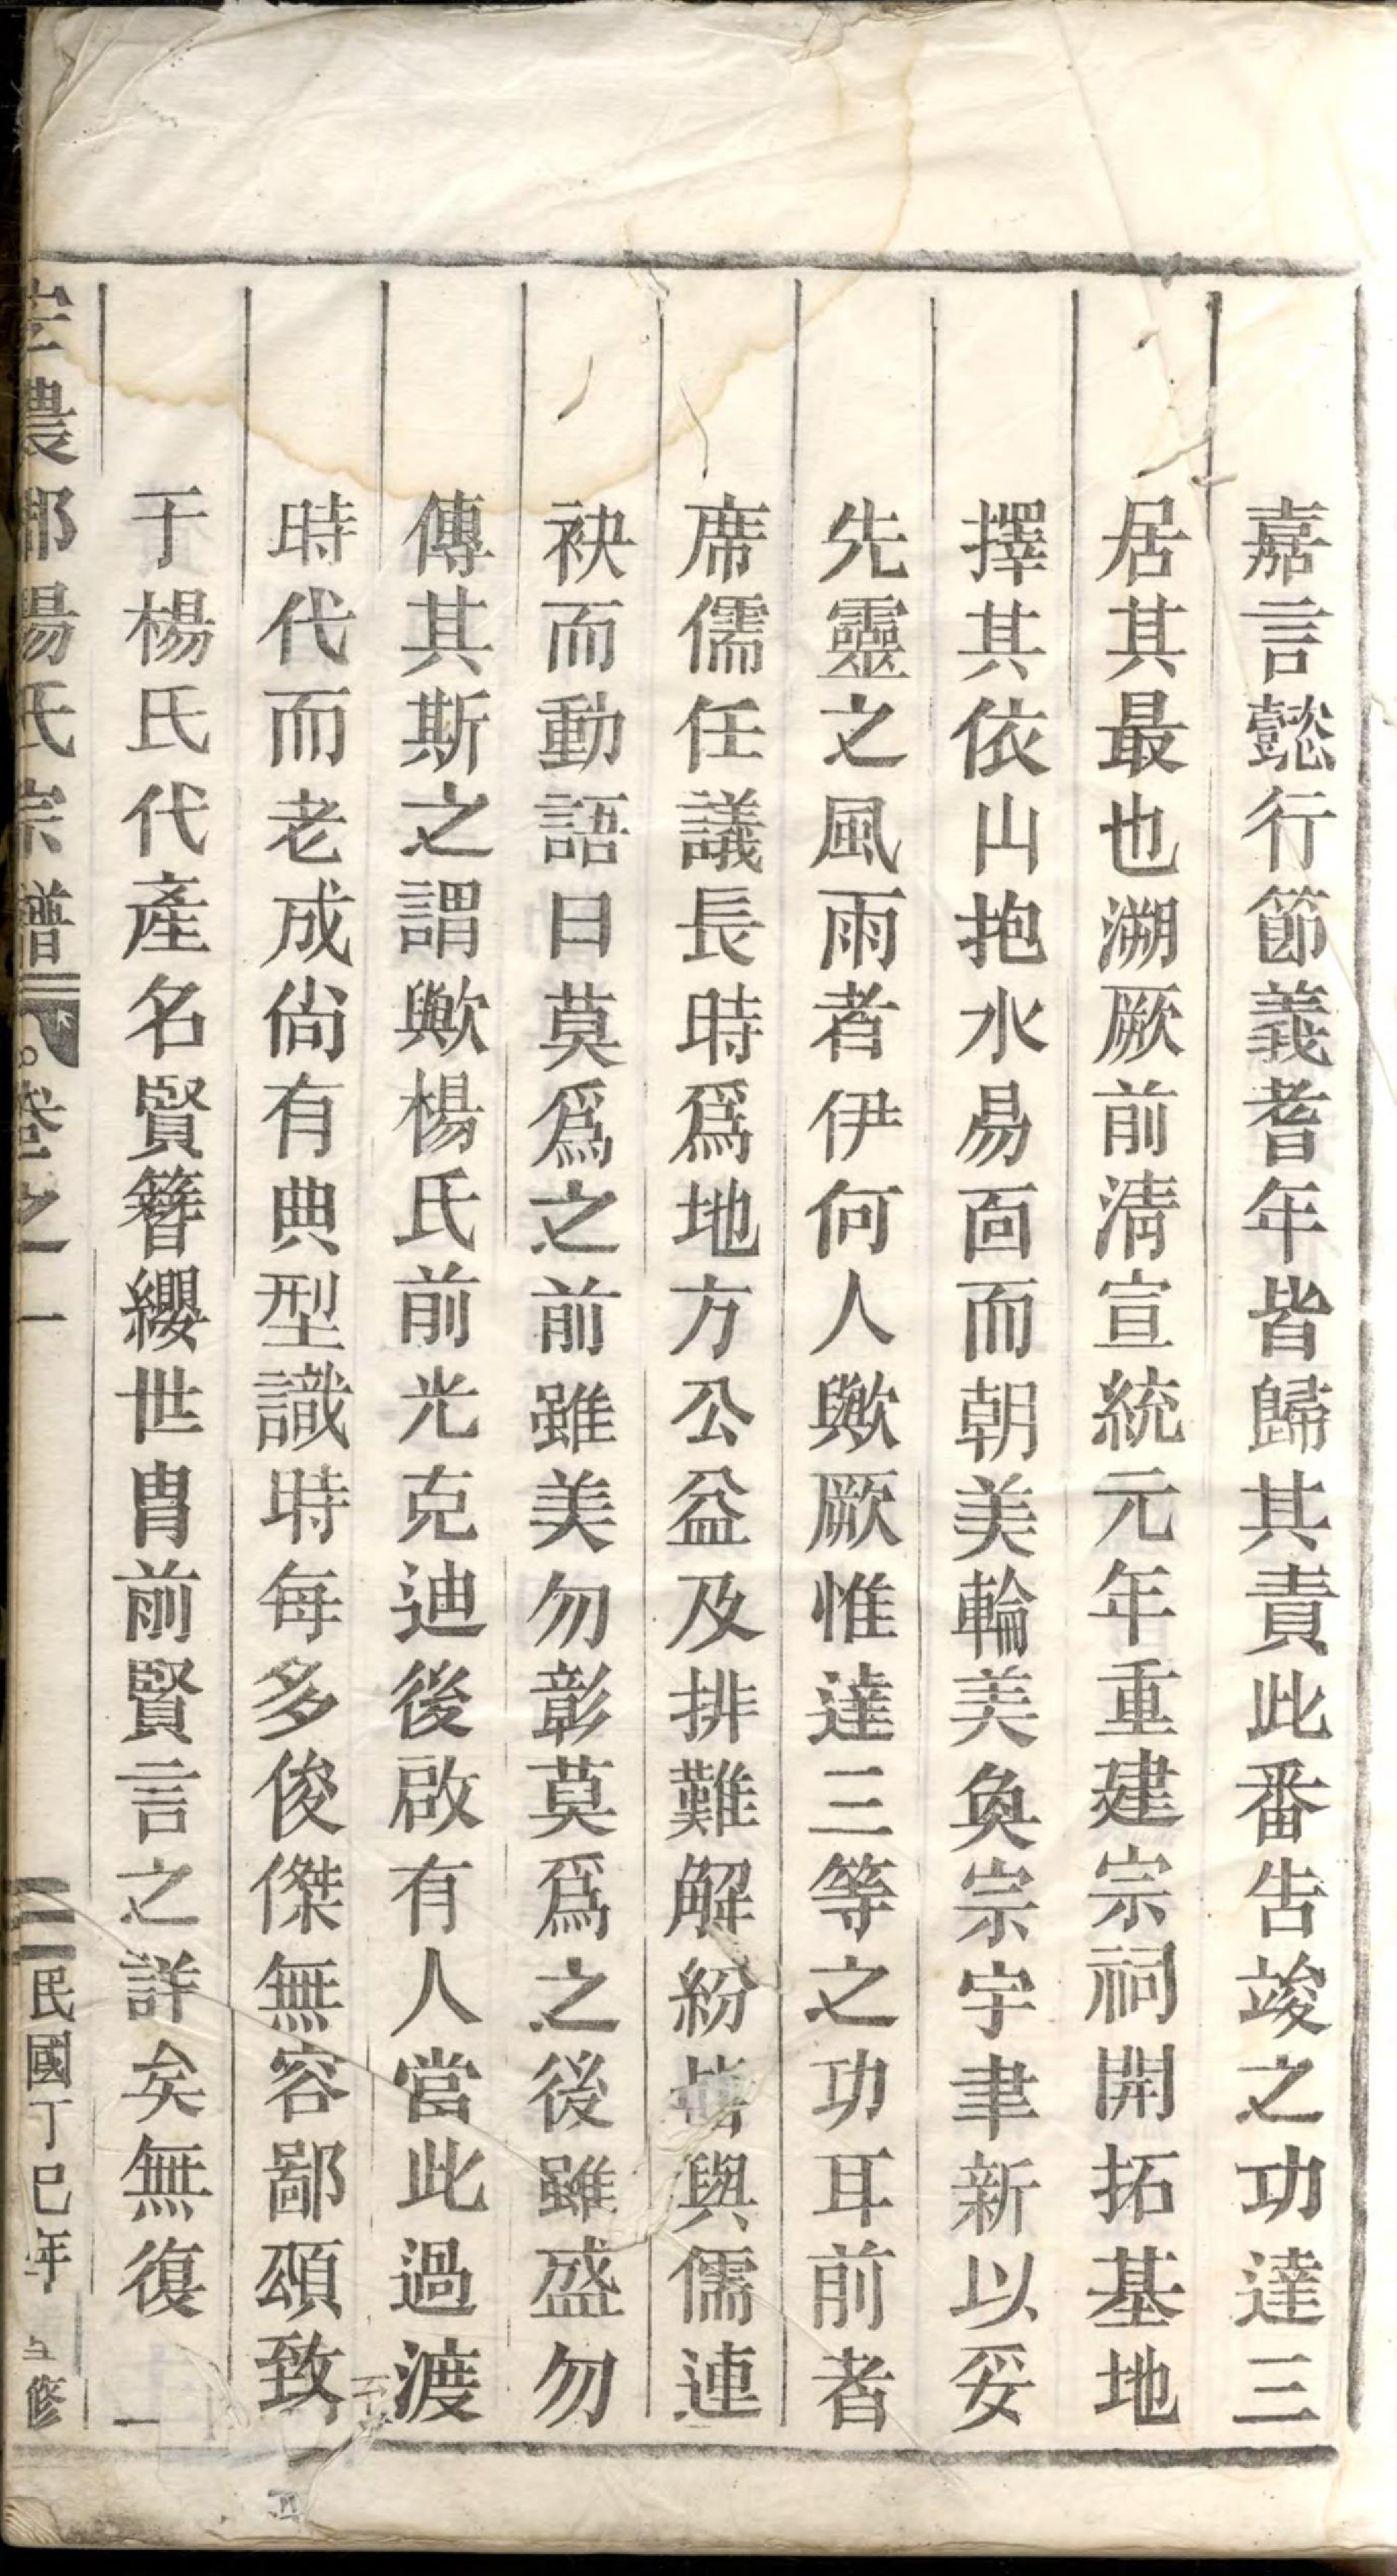 嘉言懿行節義耆年皆歸其責此番告竣之功達三
居其最也溯厥前清宣統元年重建宗祠開拓基地
擇其依山抱水易面而朝美輪美奐宗宇聿新以妥
先靈之風雨者伊何人歟厥惟達三等之功耳前者
席儒任議長時爲地方公益及排難解紛皆與儒連
袂而動語曰莫爲之前雖美勿彰莫爲之後雖盛勿
傳其斯之謂歟楊氏前光克迪後啟有人當此過渡
時代而老成尙有典型識時每多俊傑無容鄙頌致
于楊氏代產名賢簪纓世胄前賢言之詳矣無復一
農郡楊氏宗譜 卷之一 民國丁巳年 修